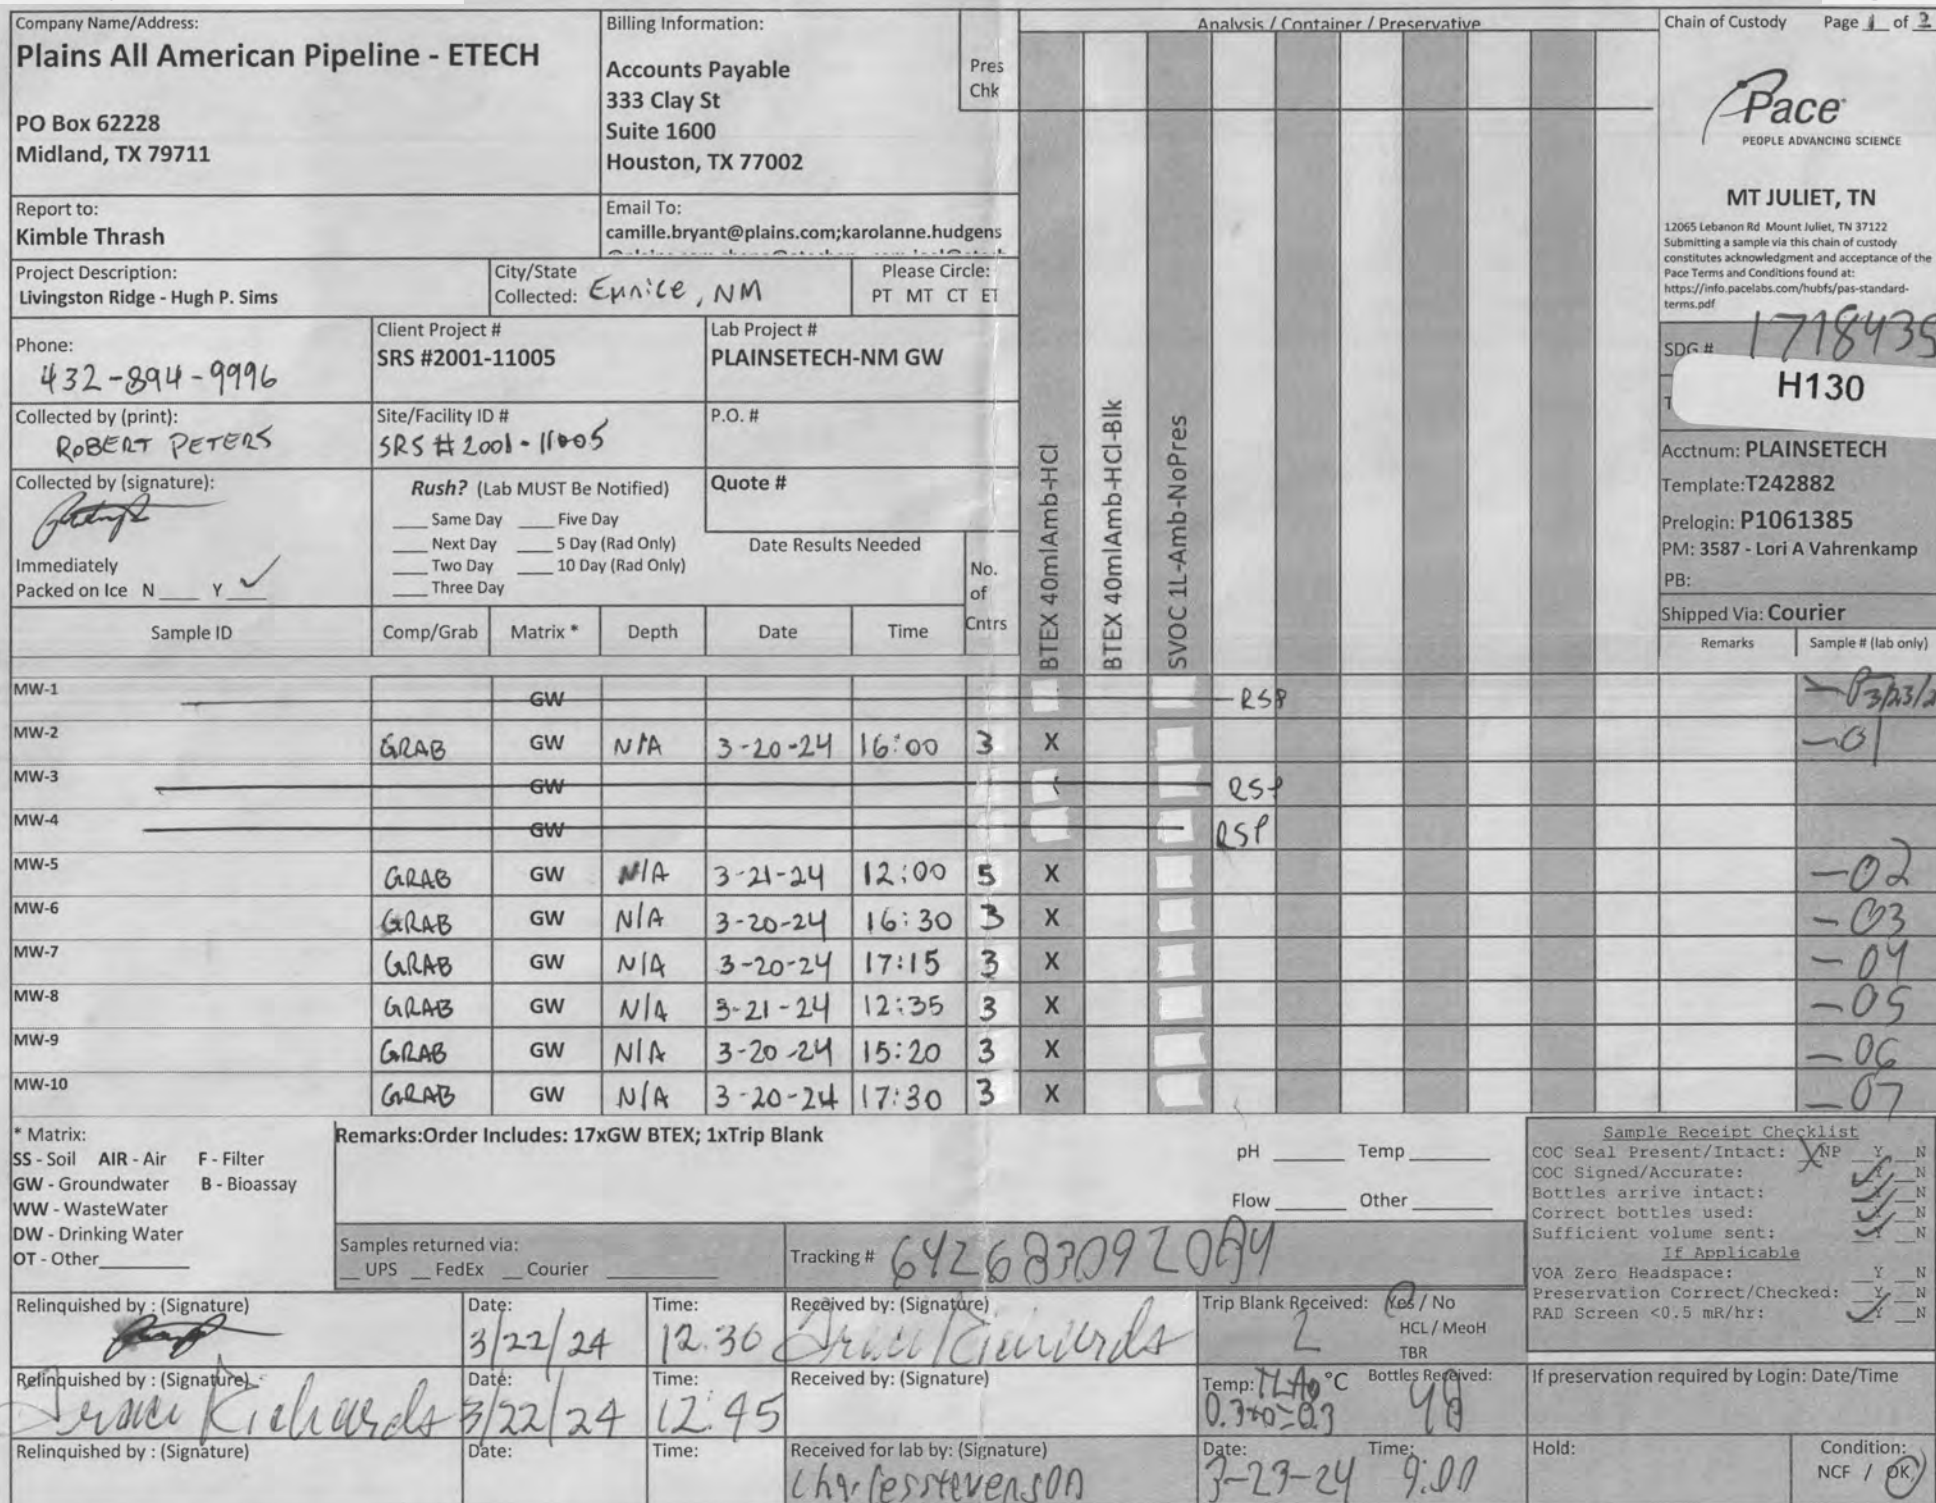 Company Name/Address:
Plains All American Pipeline - ETECH
PO Box 62228
Midland, TX 79711
Billing Information:
Accounts Payable
333 Clay St
Suite 1600
Houston, TX 77002
Pres
Chk
Analysis / Container / Preservative
Chain of Custody Page 1 of 2
Pace
PEOPLE ADVANCING SCIENCE
MT JULIET, TN
12065 Lebanon Rd Mount Juliet, TN 37122
Submitting a sample via this chain of custody
constitutes acknowledgment and acceptance of the
Pace Terms and Conditions found at:
https://info.pacelabs.com/hubfs/pas-standard-
terms.pdf
Report to:
Kimble Thrash
Email To:
camille.bryant@plains.com;karolanne.hudgens
Project Description:
Livingston Ridge - Hugh P. Sims
City/State
Collected: Eunice, NM
Please Circle:
PT MT CT ET
Phone:
432-894-9996
Client Project #
SRS #2001-11005
Lab Project #
PLAINSETECH-NM GW
SDG # 1718435
H130
Collected by (print):
ROBERT PETERS
Site/Facility ID #
SRS # 2001-11005
P.O. #
Acctnum: PLAINSETECH
Template:T242882
Prelogin: P1061385
PM: 3587 - Lori A Vahrenkamp
PB:
Shipped Via: Courier
Collected by (signature):
Immediately
Packed on Ice N ___ Y ✓
Rush? (Lab MUST Be Notified)
___ Same Day ___ Five Day
___ Next Day ___ 5 Day (Rad Only)
___ Two Day ___ 10 Day (Rad Only)
___ Three Day
Quote #
Date Results Needed
No.
of
Cntrs
BTEX 40mlAmb-HCl
BTEX 40mlAmb-HCl-Blk
SVOC 1L-Amb-NoPres
Sample ID Comp/Grab Matrix * Depth Date Time Remarks Sample # (lab only)
MW-1 GW RSP 3/23/2
MW-2 GRAB GW N/A 3-20-24 16:00 3 X -01
MW-3 GW RSP
MW-4 GW RSP
MW-5 GRAB GW N/A 3-21-24 12:00 5 X -02
MW-6 GRAB GW N/A 3-20-24 16:30 3 X -03
MW-7 GRAB GW N/A 3-20-24 17:15 3 X -04
MW-8 GRAB GW N/A 3-21-24 12:35 3 X -05
MW-9 GRAB GW N/A 3-20-24 15:20 3 X -06
MW-10 GRAB GW N/A 3-20-24 17:30 3 X -07
* Matrix:
SS - Soil AIR - Air F - Filter
GW - Groundwater B - Bioassay
WW - WasteWater
DW - Drinking Water
OT - Other
Remarks:Order Includes: 17xGW BTEX; 1xTrip Blank
pH ___ Temp ___
Flow ___ Other ___
Samples returned via:
__ UPS __ FedEx __ Courier
Tracking #
Sample Receipt Checklist
COC Seal Present/Intact: X NP _Y _N
COC Signed/Accurate: ✓Y _N
Bottles arrive intact: ✓Y _N
Correct bottles used: ✓Y _N
Sufficient volume sent: ✓Y _N
If Applicable
VOA Zero Headspace: _Y _N
Preservation Correct/Checked: _Y _N
RAD Screen <0.5 mR/hr: ✓Y _N
Relinquished by : (Signature) Date: 3/22/24 Time: 12:30
Received by: (Signature) Traci Richards
Trip Blank Received: Yes / No
HCL / MeoH
TBR
Relinquished by : (Signature) Traci Richards Date: 3/22/24 Time: 12:45
Received by: (Signature)
Temp: °C Bottles Received:
0.3+0=0.3
If preservation required by Login: Date/Time
Relinquished by : (Signature) Date: Time:
Received for lab by: (Signature) Charles Stevenson
Date: 3-23-24 Time: 9:00
Hold:
Condition:
NCF / OK